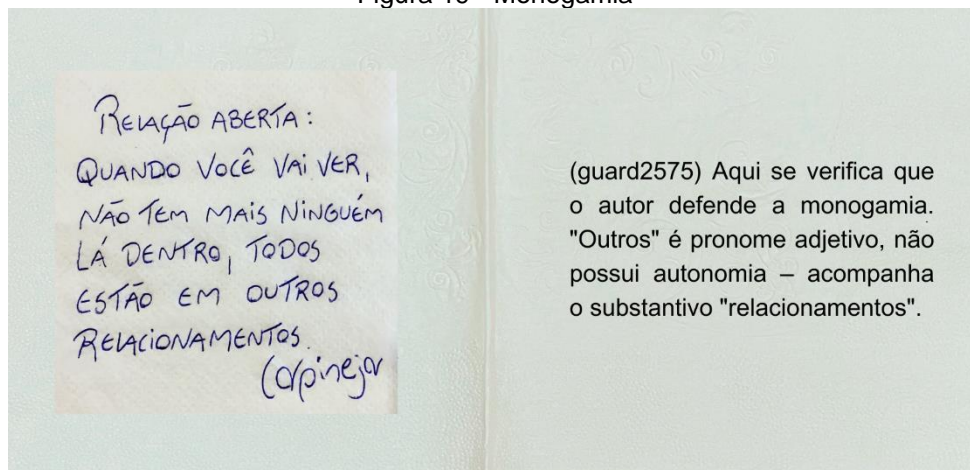 Figura 10 - Monogamia
RELAÇÃO ABERTA:
QUANDO VOCÊ VAI VER,
NÃO TEM MAIS NINGUÉM
LÁ DENTRO, TODOS
ESTÃO EM OUTROS
RELACIONAMENTOS.
Carpinejar
(guard2575) Aqui se verifica que
o autor defende a monogamia.
"Outros" é pronome adjetivo, não
possui autonomia – acompanha
o substantivo "relacionamentos".